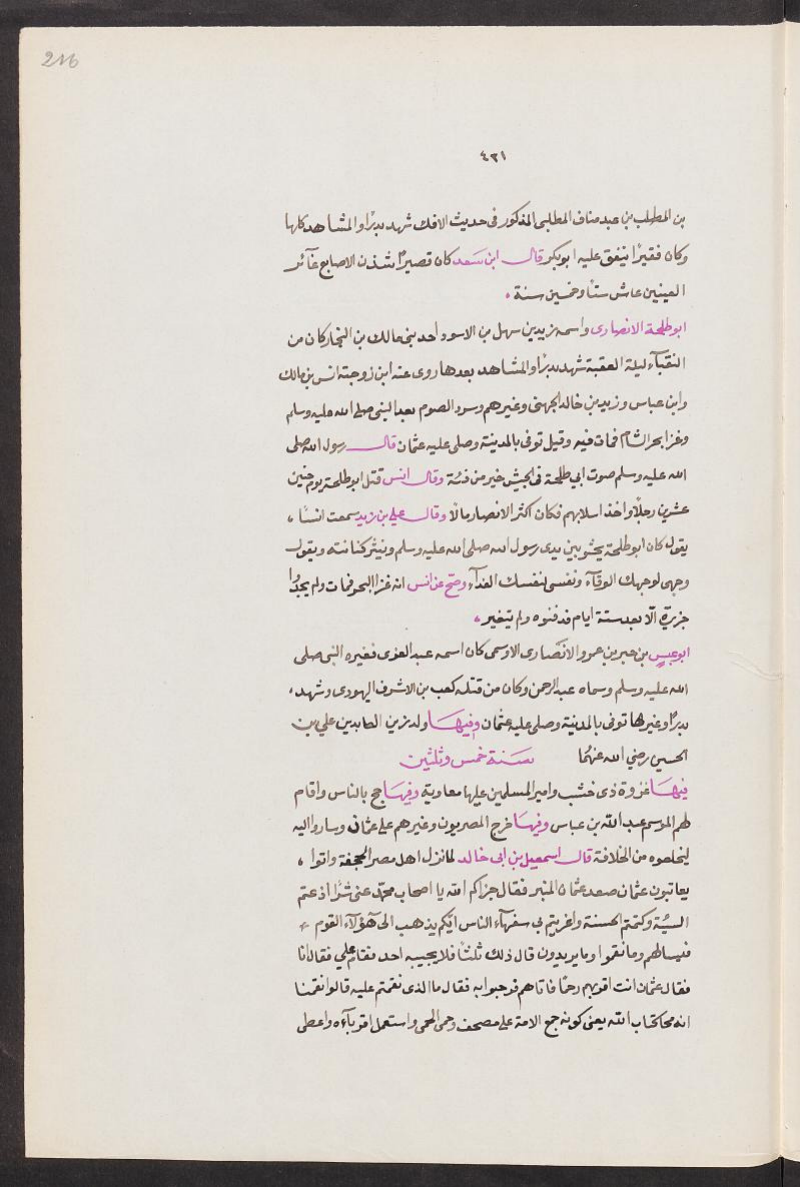 216
٤٣١
بن المطلب بن عبد مناف المطلبى المذكور فى حديث الافك شهد بدرًا والمشاهد كلها
وكان فقيرًا ينفق عليه ابو بكر قال ابن سَعد كان قصيرًا شثن الاصابع غآئر
العينين عاش ستًا وخمسين سنة .
ابو طلحة الانصارى واسمه زيد بن سهل بن الاسود احد بنى مالك بن النجار كان من
النقبآء ليلة العقبة شهد بدرًا والمشاهد بعدها روى عنه ابن زوجته انس بن مالك
وابن عباس وزيد بن خالد الجهنى وغيرهم وسرد الصوم بعد النبى صلى الله عليه وسلم
وغزا بحر الشام فمات فيه وقيل توفى بالمدينة وصلى عليه عثمان قال رسول الله صلى
الله عليه وسلم صوت ابى طلحة فى الجيش خير من فئة وقال انس قتل ابو طلحة يوم حنين
عشرين رجلًا واخذ اسلابهم فكان اكثر الانصار مالًا وقال على بن زيد سمعت انسًا ،
يقول كان ابو طلحة يجثو بين يدى رسول الله صلى الله عليه وسلم وينثر كنانته ويقول
وجهى لوجهك الوقآء ونفسى لنفسك الفدآء وصح عن انس انه غزا البحر فمات ولم يجدوا
جزيرة الّا بعد ستة ايام فدفنوه ولم يتغير .
ابو عبس بن جبر بن عمرو الانصارى الاوسى كان اسمه عبد العزى فغيره النبى صلى
الله عليه وسلم وسماه عبد الرحمن وكان من قتلة كعب بن الاشرف اليهودى وشهد ،
بدرًا وغيرها توفى بالمدينة وصلى عليه عثمان وفيها ولد زين العابدين علي بن
الحسين رضي الله عنهما سَنة خمس وثلثين
فيها غزوة ذى خشب وامير المسلمين عليها معاوية وفيها حج بالناس واقام
لهم الموسم عبد الله بن عباس وفيها خرج المصريون وغيرهم على عثمان وساروا اليه
ليخلعوه من الخلافة قال اسمعيل بن ابى خالد لما نزل اهل مصر الجحفة واتوا ،
يعاتبون عثمان صعد عثمان المنبر فقال جزاكم الله يا اصحاب محمد عنى شرًا اذعتم
السيّئة وكتمتم الحسنة واغريتم بى سفهآء الناس ايكم يذهب الى هؤلآء القوم
فيسالهم وما نقموا وما يريدون قال ذلك ثلثًا فلا يجيبه احد فقام علي فقال انا
فقال عثمان انت اقربهم رحمًا فاتاهم فرحبوا به فقال ما الذى نقمتم عليه قالوا نقمنا
انه محا كتاب الله يعنى كونه جمع الامة على مصحف وحمى الحمى واستعمل اقربآءه واعطى